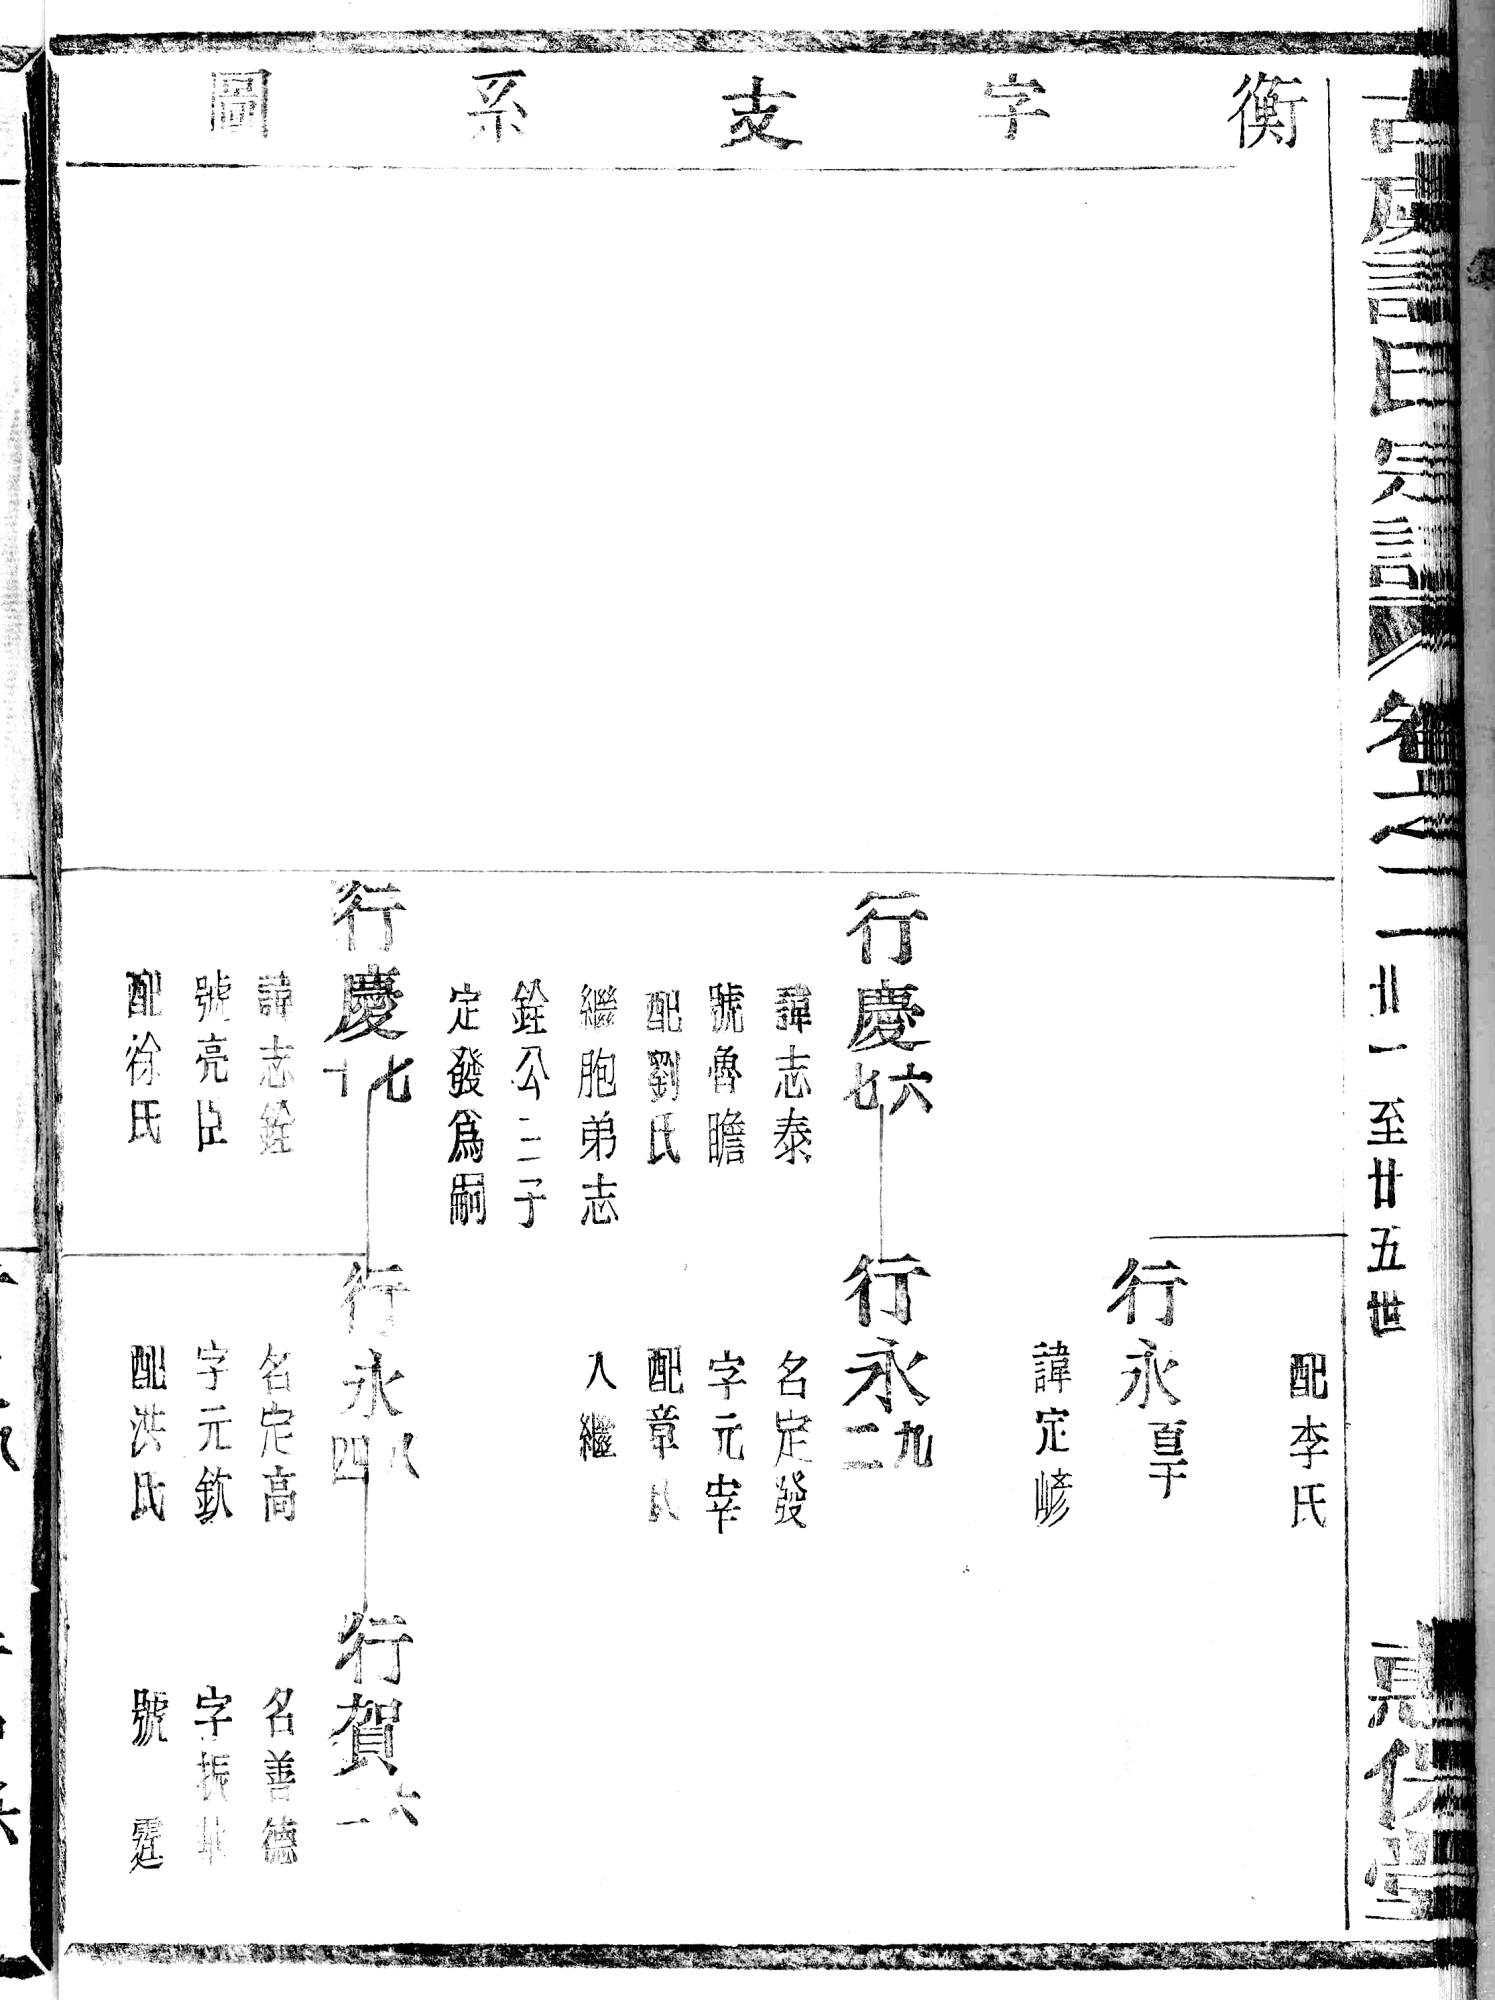 衡字支系圖
卷之二
廿一至廿五世
配李氏
行永
百三十
諱定
行慶六七
諱志泰
號魯瞻
配劉氏
繼胞弟志
銓公二子
定發爲嗣
行永九二
名定發
字元宰
配章氏
入繼
行慶七十
諱志銓
號亮臣
配徐氏
行永八四
名定高
字元欽
配洪氏
行賀六一
名善德
字振
號霆